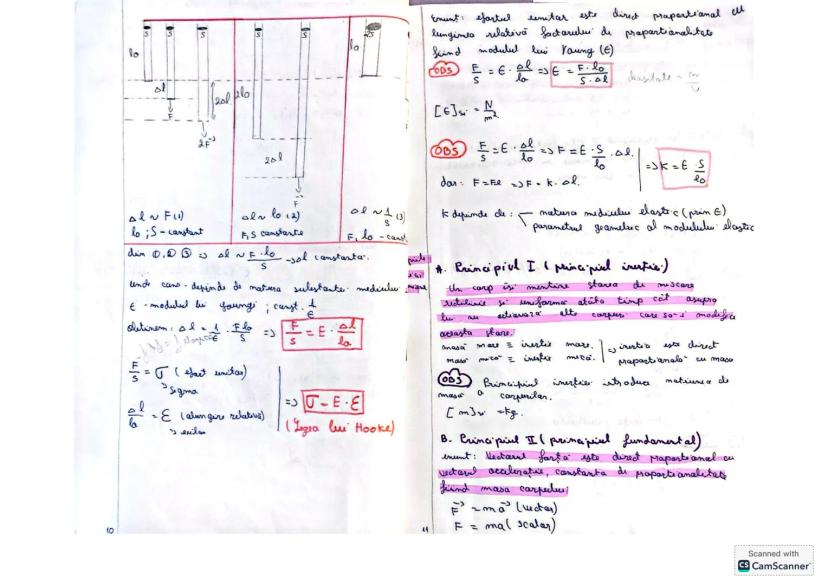 S S S S S S
l₀ Δl 2Δl 2l₀ 2Δl l₀
F 2F F
Δl ~ F (1)
l₀ ; S - constant
Δl ~ l₀ (2)
F, S constante
Δl ~ 1/S (3)
F, l₀ - const
din ①, ② ③ => Δl ~ F·l₀/S
constanta.
depinde de natura
E - modulul lui ; const. 1/E
obtinem: Δl = 1/E · F·l₀/S => F/S = E · Δl/l₀
F/S = σ (efort unitar)
sigma
Δl/l₀ = ε (alungire relativa)
=> σ = E · ε
(Legea lui Hooke)
10
enunt: efortul unitar este direct proportional cu
lungirea relativă factorului de proportionalitate
fiind modulul lui Young (E)
OBS F/S = E · Δl/l₀ => E = F·l₀/S·Δl
densitate = m/V
[E]si = N/m²
OBS F/S = E · Δl/l₀ => F = E · S/l₀ · Δl.
dar: F = Fe => F = k · Δl.
=> K = E · S/l₀
K depinde de: natura mediului elastic (prin E)
parametrul geometric al modulului elastic
A. Principiul I (principiul inertiei)
Un corp isi mentine starea de miscare
rectilinie si uniforma atâta timp cât asupra
lui nu actionează alte corpuri care sa-i modifice
aceasta stare.
masă mare ≡ inertie mare.
masă mică ≡ inertie mică.
=> inertia este direct
proportionala cu masa
OBS Principiul inertiei introduce notiunea de
masă a corpurilor.
[m]si = kg.
B. Principiul II (principiul fundamental)
enunt: Vectorul forță este direct proportional cu
vectorul acceleratie, constanta de proportionalitate
fiind masa corpului:
F = ma (vector)
F = ma (scalar)
11
Scanned with
CS CamScanner